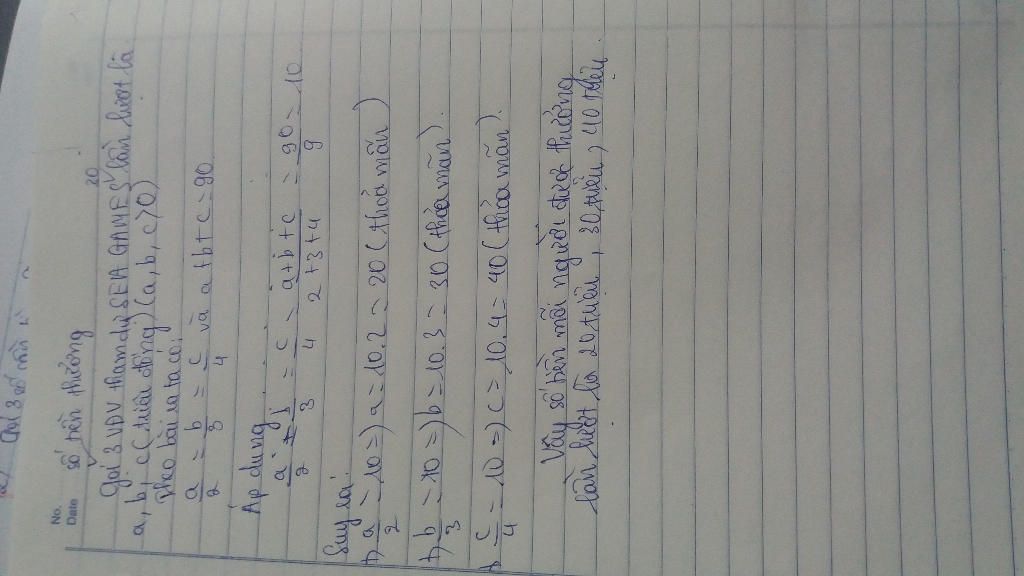 Gọi 3 số
No.
Date
số tiền thưởng
20
Gọi 3 VĐV tham dự SEA GAMES lần lượt là
a, b, c (triệu đồng) (a, b, c > 0)
Theo bài ra ta có:
a/2 = b/3 = c/4 và a+b+c = 90
Áp dụng
a/2 = b/3 = c/4 = a+b+c/2+3+4 = 90/9 = 10
Suy ra:
+) a/2 = 10 => a = 10.2 = 20 (thỏa mãn)
+) b/3 = 10 => b = 10.3 = 30 (thỏa mãn).
+) c/4 = 10 => c = 10.4 = 40 (thỏa mãn).
Vậy số tiền mỗi người được thưởng
lần lượt là 20 triệu, 30 triệu, 40 triệu.